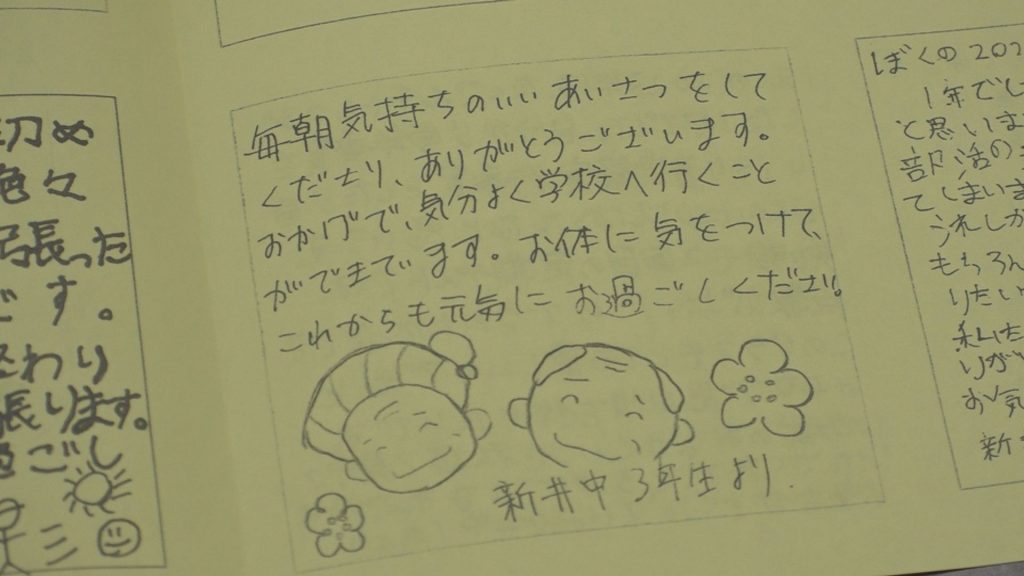 切め
色々
張った
です。
終わり
張ります。
過ごし
毎朝気持ちのいいあいさつをして
くださり、ありがとうございます。
おかげで、気分よく学校へ行くこと
ができています。お体に気をつけて、
これからも元気にお過ごしください。
新井中3年生より.
ぼくの202
1年でし
と思いま
部活の
てしまいま
うれしか
もちろん
りたい
私た
りが
お気
新